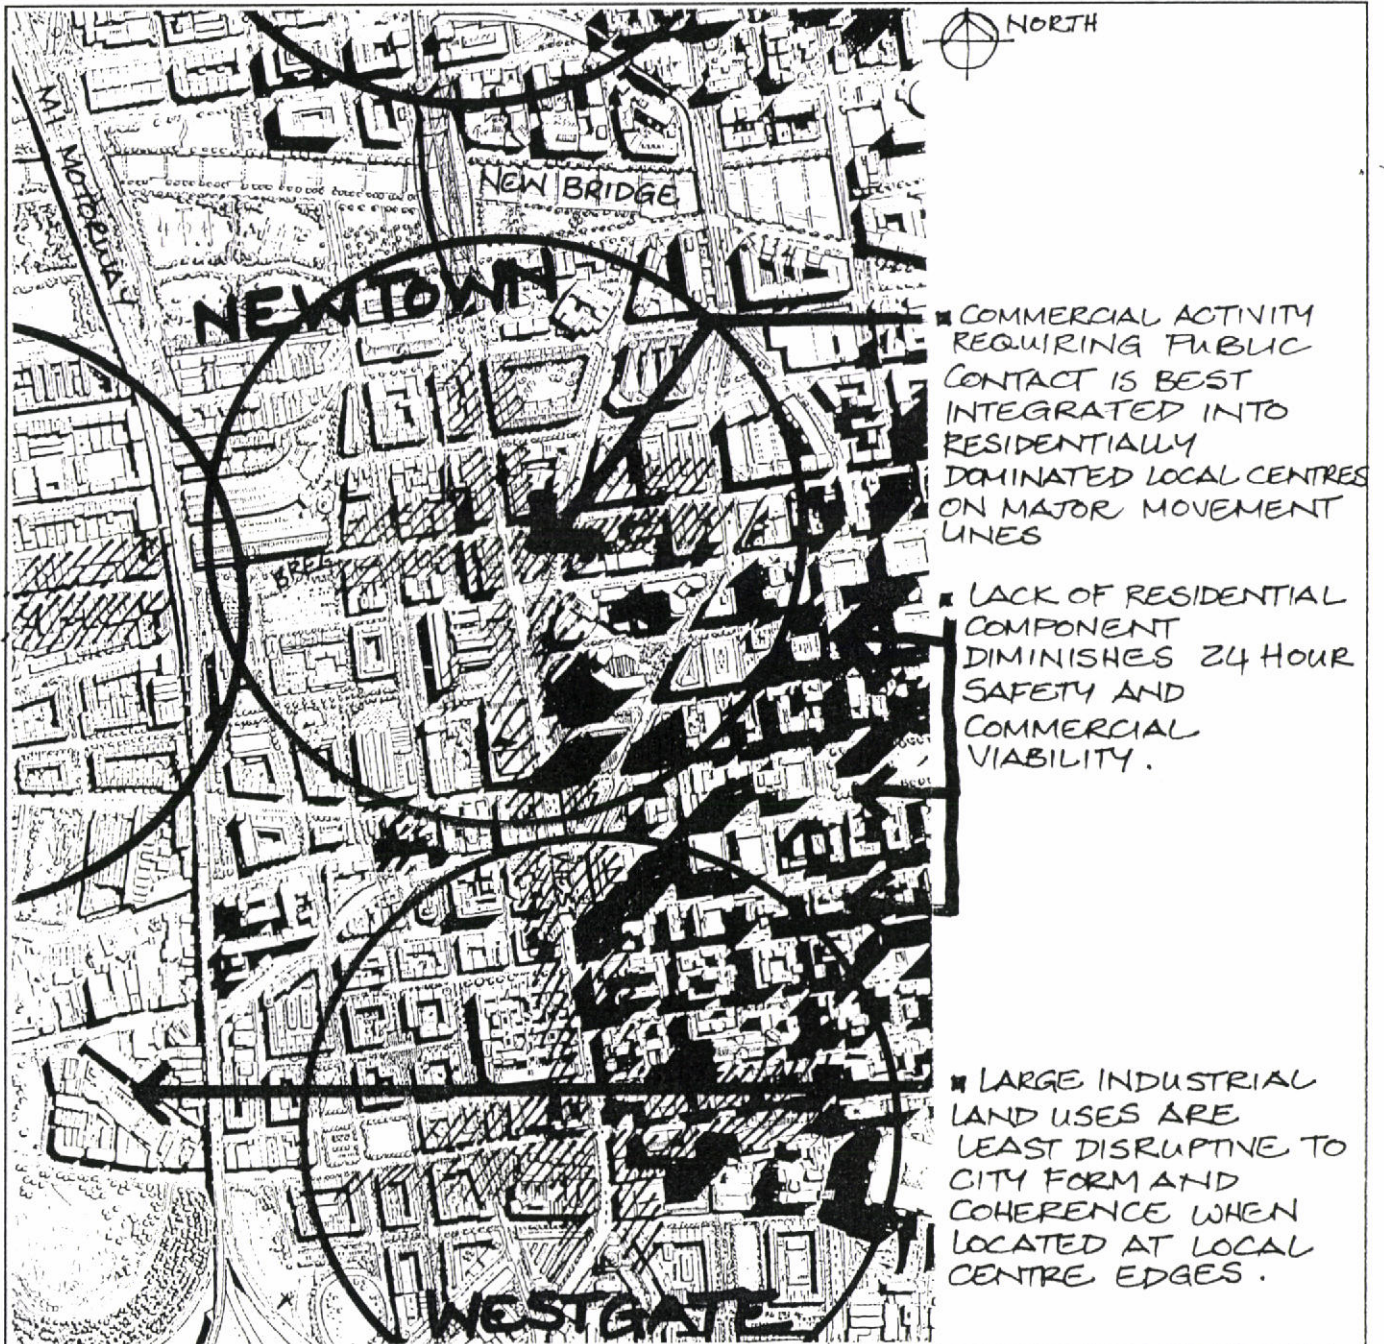 NORTH
M1 MOTORWAY
NEW BRIDGE
NEWTOWN
■ COMMERCIAL ACTIVITY
REQUIRING PUBLIC
CONTACT IS BEST
INTEGRATED INTO
RESIDENTIALLY
DOMINATED LOCAL CENTRES
ON MAJOR MOVEMENT
LINES
BREE
■ LACK OF RESIDENTIAL
COMPONENT
DIMINISHES 24 HOUR
SAFETY AND
COMMERCIAL
VIABILITY.
■ LARGE INDUSTRIAL
LAND USES ARE
LEAST DISRUPTIVE TO
CITY FORM AND
COHERENCE WHEN
LOCATED AT LOCAL
CENTRE EDGES.
WESTGATE